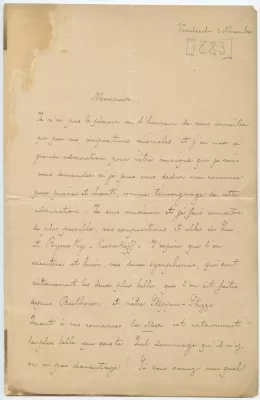 Vendredi 2 Novembre
[1883]
Monsieur,
Je n'ai pas le plaisir ou l'honneur de vous connaître
que par vos compositions musicales et j'ai une si
grande admiration pour votre musique que je viens
vous demander si je puis vous dédier une romance
pour piano et chant, comme témoignage de cette
admiration. Je suis musicien et je fais connaître
le plus possible vos compositions et celles de Cui
et Rymsky-Korsakoff. J'espère que l'on
exécutera cet hiver, vos deux symphonies, qui sont
certainement les deux plus belles que l'on ait faites
depuis Beethoven, et votre Steppen-Skizze
Quant à vos romances la Mer est certainement
la plus belle qui existe. Quel dommage qu'il n'y
en ai pas davantage! Si vous saviez avec quel